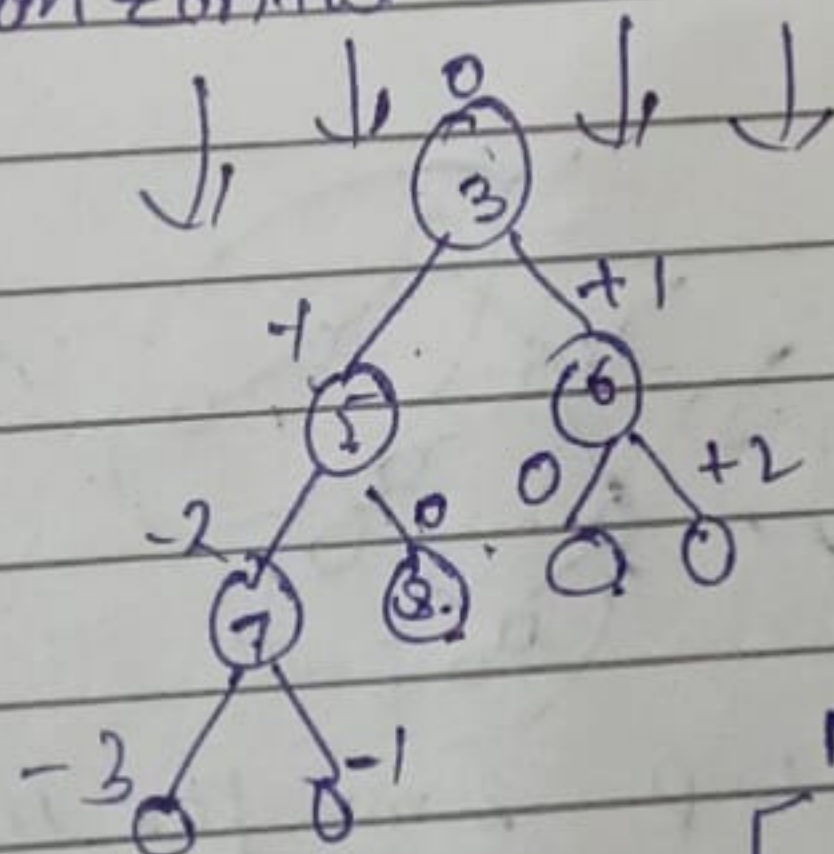 0
3
-1 +1
5 6
-2 0 0 +2
7 8
-3 -1